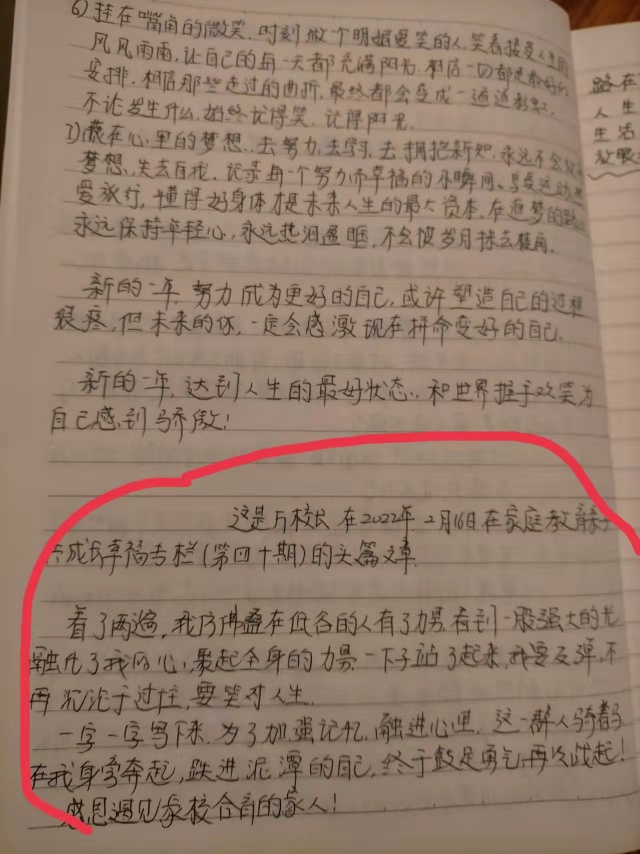 6) 挂在嘴角的微笑.时刻做个明媚爱笑的人,笑着接受人生的
风风雨雨,让自己的每一天都充满阳光.相信一切都是最好的
安排.相信那些走过的曲折,最终都会变成一道道彩虹.
不论发生什么,始终记得笑.记得阳光.
7)藏在心里的梦想..去努力,去学习,去拥抱新知.永远不会放弃
梦想,失去自我.记录每一个努力而幸福的小瞬间.享受运动
爱旅行,懂得好身体才是未来人生的最大资本.在追梦的路上
永远保持年轻心,永远热泪盈眶,不会被岁月抹去棱角.
新的一年.努力成为更好的自己,或许塑造自己的过程
很疼,但未来的你,一定会感激现在拼命变好的自己.
新的一年.达到人生的最好状态..和世界握手欢笑为
自己感到骄傲!
这是万校长在2022年2月16日在家庭教育亲子
成长幸福专栏(第四十期)的头篇文章.
看了两遍,我仿佛叠在低谷的人有了力量.看到一股强大的光
融化了我的心,聚起全身的力量一下子站了起来,我要反弹,不
再沉沦于过往,要笑对人生.
一字一字写下来.为了加强记忆,融进心里.这一群人骑着马
在我身旁奔起,跌进泥潭的自己,终于鼓足勇气,再次战起!
感恩遇见家校合育的家人!
路在
人生
生活
放眼